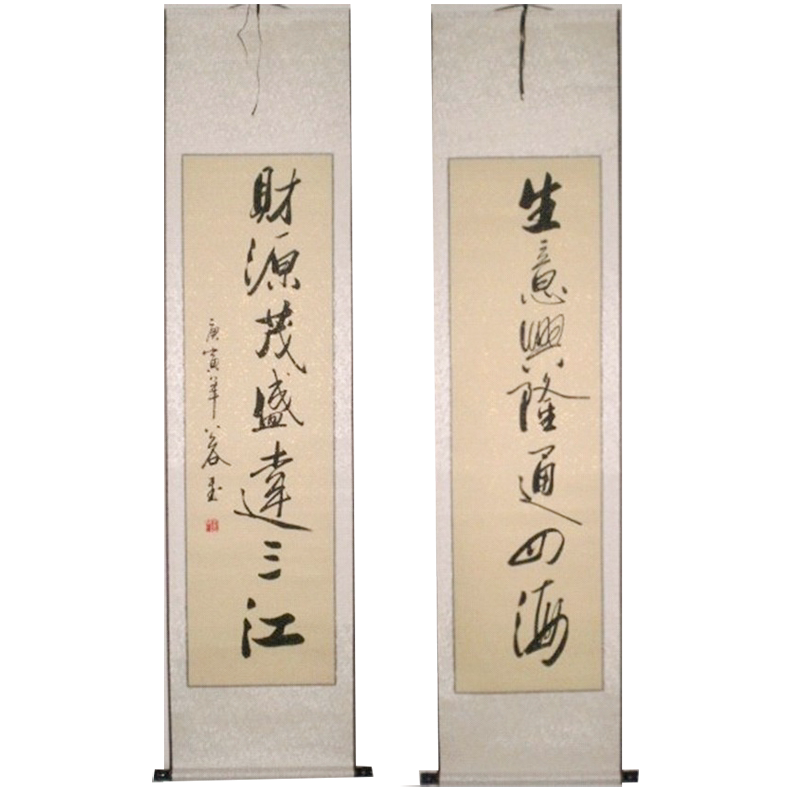 生意興隆通四海
財源茂盛達三江
庚寅年